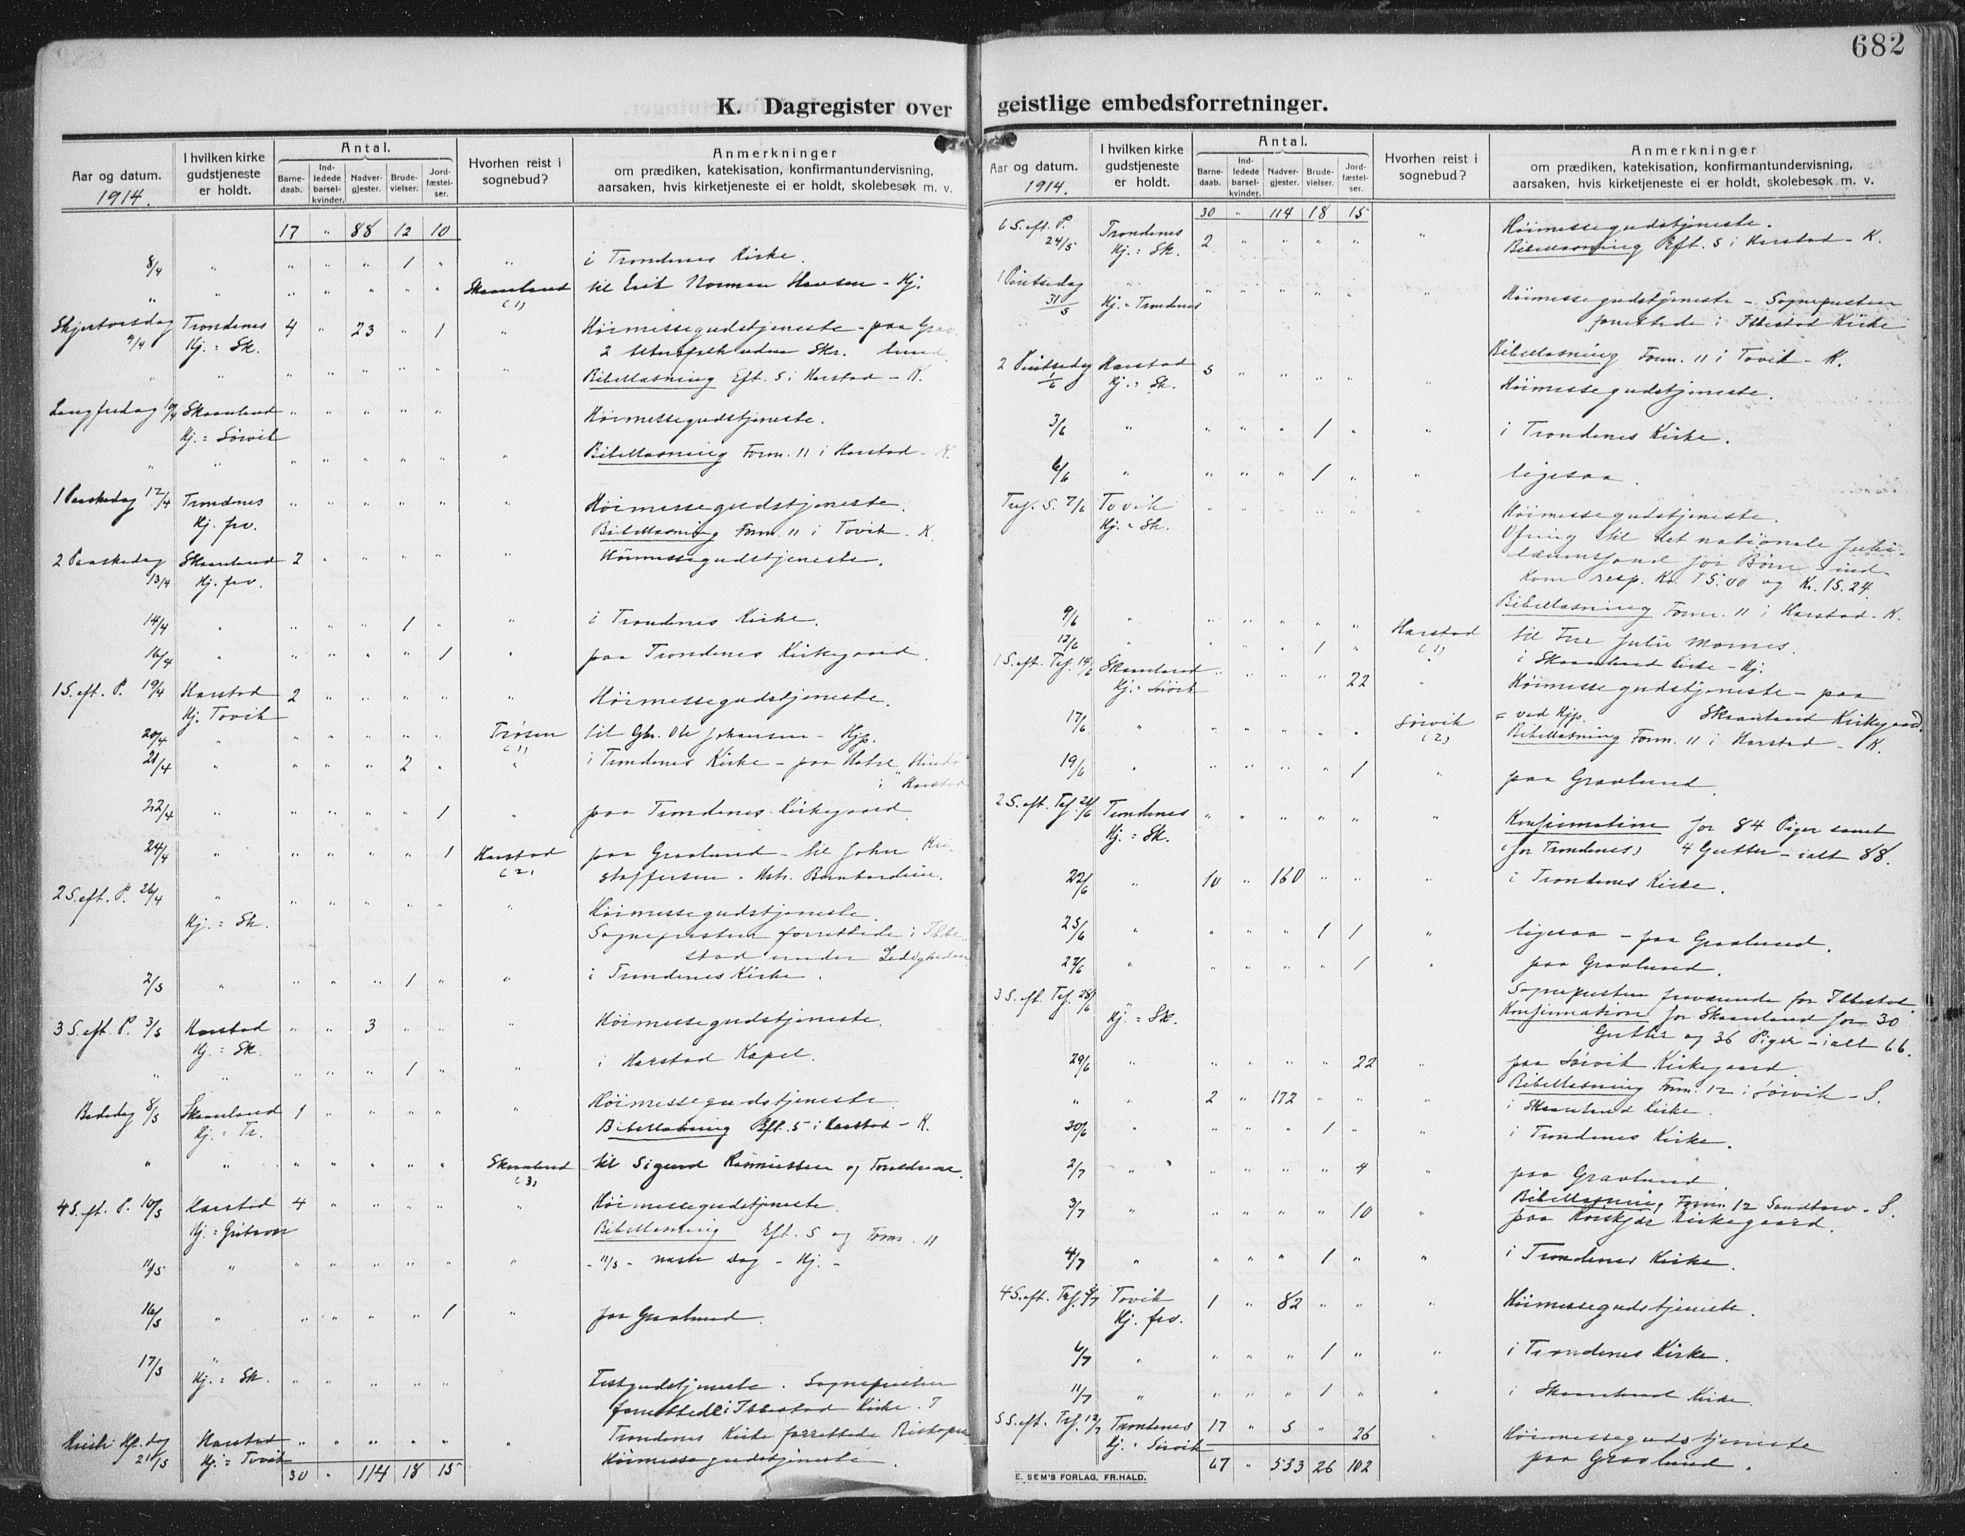 682
K. Dagregister over geistlige embedsforretninger.
Aar og datum. 1914.
I hvilken kirke gudstjeneste er holdt.
Antal.
Barnedaab.
Indledede barselkvinder.
Nadvergjester.
Brudevielser.
Jordfæstelser.
Hvorhen reist i sognebud?
Anmerkninger
om prædiken, katekisation, konfirmantundervisning,
aarsaken, hvis kirketjeneste ei er holdt, skolebesøk m. v.
17 " 88 12 10
8/4 " " " " 1 " " i Trondenes Kirke.
" " " " " " " Skaanland (1) til Erik Norman Hansen - Kj.
Skjærtorsdag Trondenes 4 " 23 " 1 " Høimessegudstjeneste - paa Grav-
9/4 Kj. = Sk. 2 uden Skr. lund.
" " " " " " Bibellæsning Eft. 5 i Harstad - K.
Langfredag 10/4 Skaanland " " " " " Høimessegudstjeneste.
Kj. = Sørvik
" " " " " " " " Bibellæsning Form. 11 i Harstad - K.
1 Paaskedag 12/4 Trondenes " " " " " " Høimessegudstjeneste.
Kj. frv. Bibellæsning Form. 11 i Tovik - K.
2 Paaskedag Skaanland 2 " " " " " Høimessegudstjeneste.
13/4 Kj. frv.
14/4 " " " " 1 " " i Trondenes Kirke.
16/4 " " " " " 1 " paa Trondenes Kirkegaard.
1 S. eft. P. 19/4 Harstad 2 " " " " " Høimessegudstjeneste.
Kj. Tovik
20/4 " " " " " " Trøsen (1) til Gbr. Ole Johansen - Hjp.
21/4 " " " " 2 " " i Trondenes Kirke - paa Hotel
i Harstad
22/4 " " " " " 1 " paa Trondenes Kirkegaard
24/4 " " " " " 1 Harstad (2) paa Gravlund - til John Kri-
stoffersen.
2 S. eft. P. 26/4 " " " " " " Høimessegudstjeneste.
Kj. = Sk. Sognepresten forrettede i Ibbe-
stad under Ledigheden
2/5 " " " " 1 " " i Trondenes Kirke.
3 S. eft. P. 3/5 Harstad " " 3 " " " Høimessegudstjeneste.
Kj. = Sk.
" " " " " 1 " " i Harstad Kapel.
Bededag 8/5 Skaanland 1 " " " " " Høimessegudstjeneste.
Kj. = Tr. Bibellæsning Eft. 5 i Harstad - K.
" " " " " " " Skaanland (3) til Sigurd Rasmussen og
4 S. eft. P. 10/5 Harstad 4 " " " " " Høimessegudstjeneste.
Kj. = Bibellæsning Eft. 5 og Form. 11
11/5 " " " " " " " - 11/5 - næste Dag - Kj. -
16/5 " " " " " 1 " paa Gravlund.
17/5 " " " " " " Festgudstjeneste. Sognepresten
Kj. = Sk. forrettede i Ibbestad Kirke. I
Trondenes Kirke forrettede Biskopen
Kristi Hf. dag Harstad " " " " " " Høimessegudstjeneste.
21/5 Kj. = Tovik
30 " 114 18 15
Aar og datum. 1914.
I hvilken kirke gudstjeneste er holdt.
Antal.
Barnedaab.
Indledede barselkvinder.
Nadvergjester.
Brudevielser.
Jordfæstelser.
Hvorhen reist i sognebud?
Anmerkninger
om prædiken, katekisation, konfirmantundervisning,
aarsaken, hvis kirketjeneste ei er holdt, skolebesøk m. v.
30 " 114 18 15
6 S. eft. P. Trondenes 2 " " " " " Høimessegudstjeneste.
24/5 Kj. = Sk. Bibellæsning Eft. 5 i Harstad - K.
1 Pintsedag " " " " " " " Høimessegudstjeneste - Sognepresten
31/5 Kj. = Trondenes forrettede i Ibbestad Kirke
Bibellæsning Form. 11 i Tovik - K.
2 Pintsedag Harstad 5 " " " " " Høimessegudstjeneste.
1/6 Kj. = Sk.
3/6 " " " " 1 " " i Trondenes Kirke.
6/6 " " " " 1 " " ligesaa.
Tref. S. 7/6 Tovik " " " " " " Høimessegudstjeneste.
Kj. = Sk. Ofring til det nationale Jubi-
læumsfond for Børn - ind-
kom resp. Kr. 75.00 og Kr. 15.24.
Bibellæsning Form. 11 i Harstad - K.
9/6 " " " " " " Harstad (1) til Frue Julie Mornes.
12/6 " " " " 1 " " i Skaanland Kirke - Kj.
1 S. eft. Tref. 14/6 Skaanland " " " " 22 " Høimessegudstjeneste - paa
Kj. = Sørvik Skaanland Kirkegaard.
17/6 " " " " " " Sørvik (2) = ved Hjp.
Bibellæsning Form. 11 i Harstad - K.
19/6 " " " " " 1 " paa Gravlund.
2 S. eft. Tref. 21/6 Trondenes " " " " " " Konfirmation for 84 Piger samt
Kj. = Sk. (for Trondenes) 4 Gutter - ialt 88.
22/6 " 10 " 160 " " i Trondenes Kirke.
25/6 " " " " 1 1 " ligesaa - paa Gravlund.
27/6 " " " " " 1 " paa Gravlund.
3 S. eft. Tref. 28/6 Kj. = Sk. Sognepresten fraværende for Ibbestad.
Konfirmation for Skaanland for 30
Gutter og 36 Piger - ialt 66.
29/6 " " " " " 22 " paa Sørvik Kirkegaard.
Bibellæsning Form. 12 i Sørvik - S.
" " 2 " 172 " " " i Skaanland Kirke.
30/6 " " " " 1 " " i Trondenes Kirke.
2/7 " " " " " 4 " paa Gravlund.
Bibellæsning Form. 12 Sandtorv - S.
3/7 " " " " " 10 " paa Kirkegaard.
4/7 " " " " 1 " " i Trondenes Kirke.
4 S. eft. Tref. 5/7 Tovik 1 " 82 " " " Høimessegudstjeneste.
Kj. frv.
6/7 " " " " 1 " " i Trondenes Kirke.
11/7 " " " " 1 " " i Skaanland Kirke.
5 S. eft. Tref. 12/7 Trondenes 17 " 5 " 26 " Høimessegudstjeneste
Kj. = Sørvik paa Gravlund.
67 " 533 26 102
E. SEM'S FORLAG, FR.HALD.